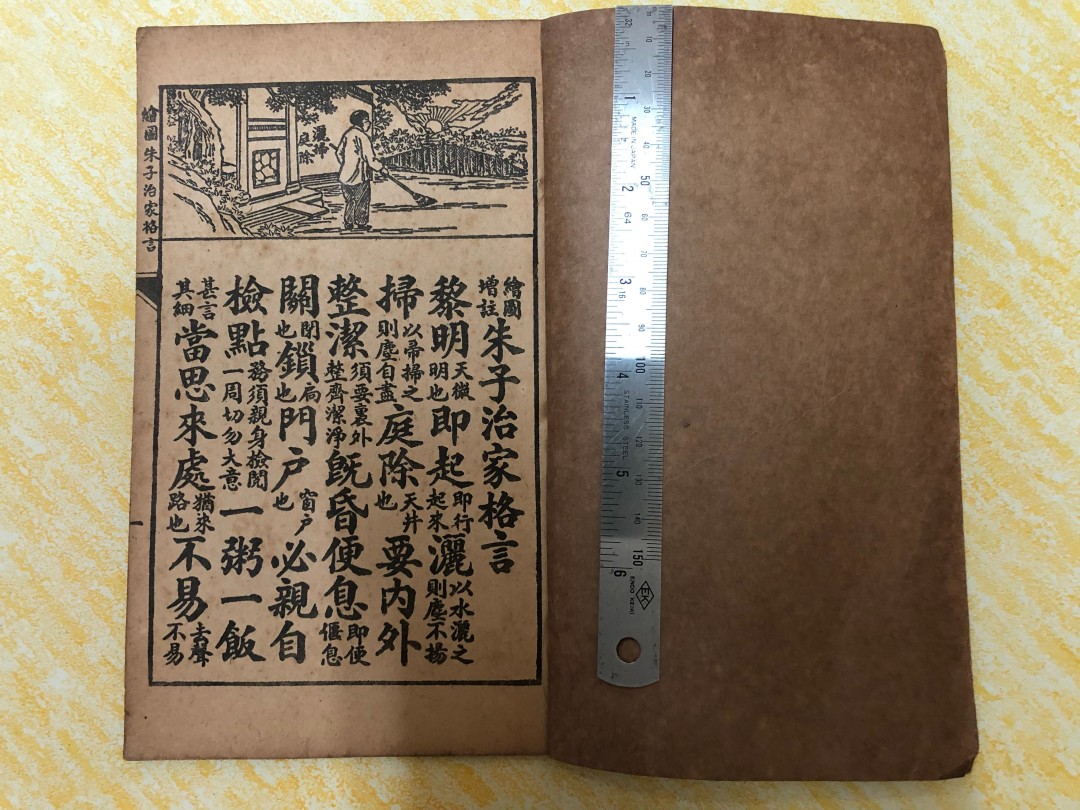 灑掃
庭除
繪圖增註朱子治家格言
黎明天微明也即起即行起來灑以水灑之則塵不揚
掃以帚掃之則塵自盡庭除天井也要內外
整潔須要裏外整齊潔淨旣昏便息即便偃息
關閉也鎖扃也門戶窗戶也必親自
檢點務須親身檢閱一周切勿大意一粥一飯
甚言其細當思來處猶來路也不易去聲不易
繪圖朱子治家格言
32 1 2 64 3 16 4 5 6
MADE IN JAPAN
STAINLESS STEEL
10 20 30 40 50 60 70 80 90 100 110 120 130 140 150
EK